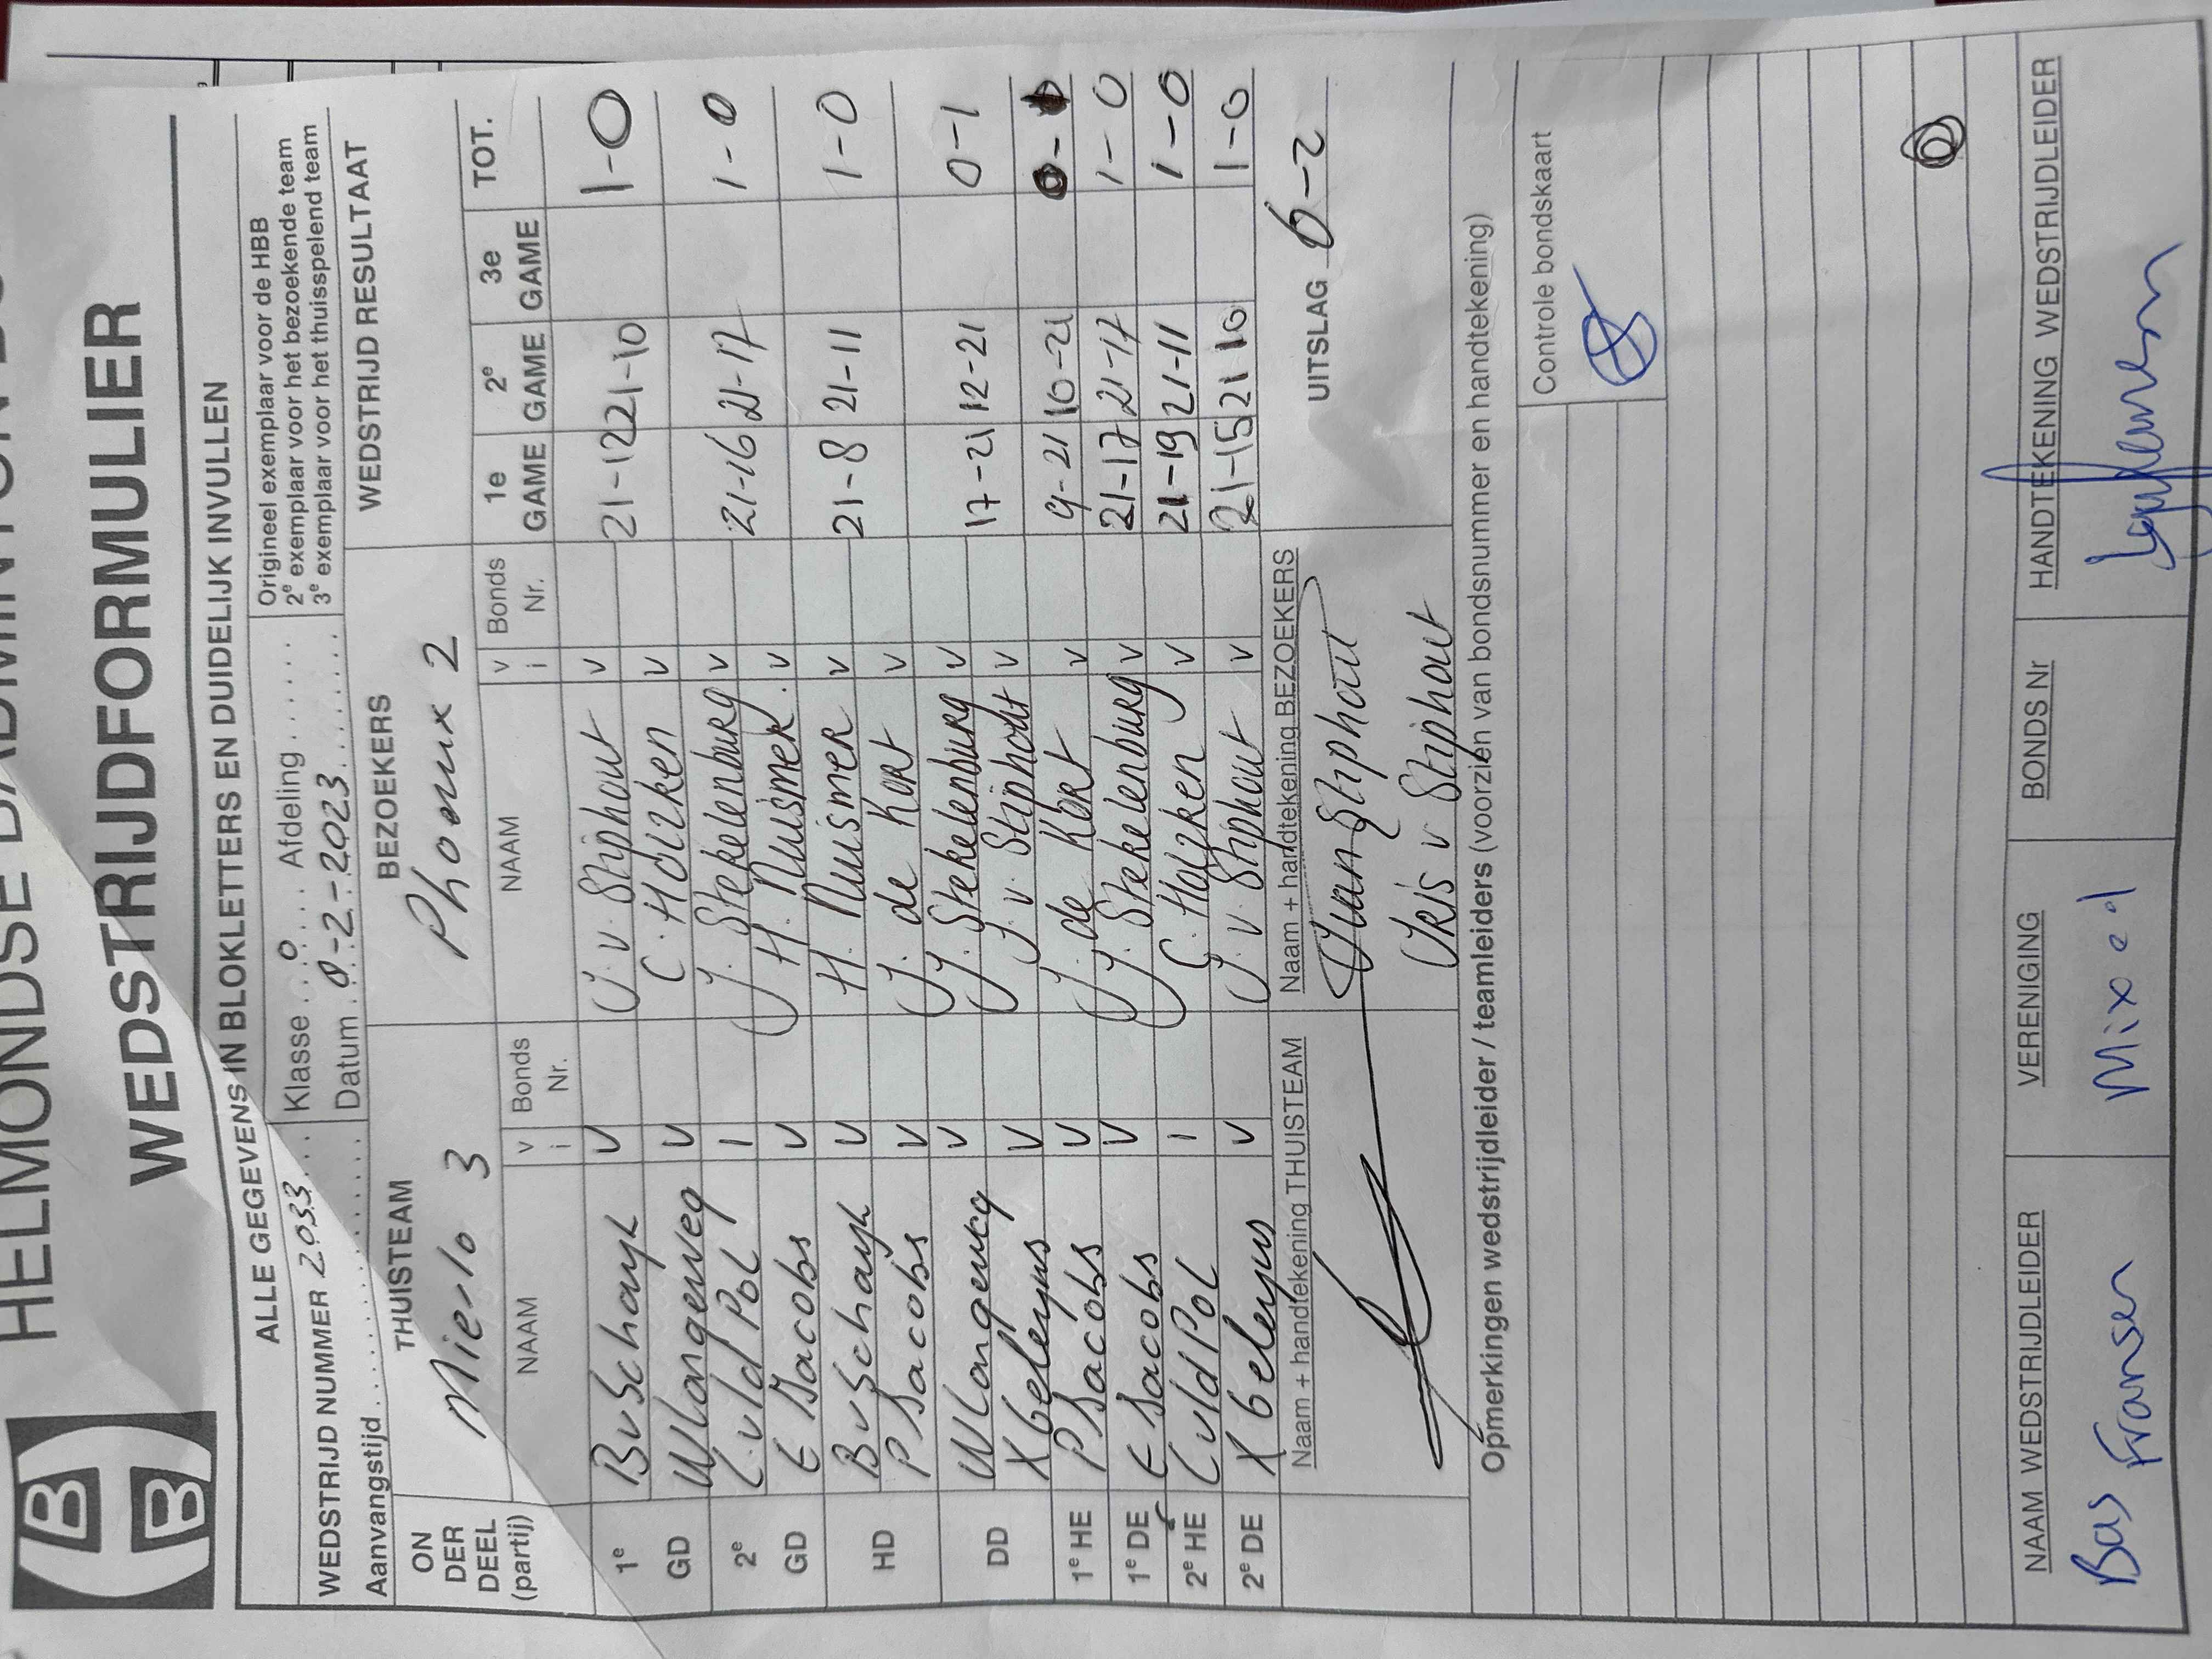 HELMONDSE BADMINTON
WEDSTRIJDFORMULIER
ALLE GEGEVENS IN BLOKLETTERS EN DUIDELIJK INVULLEN
WEDSTRIJD NUMMER 2033 Klasse 0 Afdeling
Aanvangstijd Datum 0-2-2023
Origineel exemplaar voor de HBB
2e exemplaar voor het bezoekende team
3e exemplaar voor het thuisspelend team
ON DER DEEL (partij) THUISTEAM BEZOEKERS WEDSTRIJD RESULTAAT
Mierlo 3 Phoenix 2
NAAM v i Bonds Nr. NAAM v i Bonds Nr. 1e GAME 2e GAME 3e GAME TOT.
1e B v Schayk v J. v. Stiphout v 21-12 21-10 1-0
GD W Langeweg v C. Holzken v
2e L v ld Pol 1 J. Stekelenburg v 21-16 21-17 1-0
GD E Jacobs v H. Nuismer v
HD B v Schayk v H. Nuismer v 21-8 21-11 1-0
P Jacobs v J. de Kort v
DD W Langeweg v J. Stekelenburg v 17-21 12-21 0-1
X Geleyns v J. v. Stiphout v
1e HE P Jacobs v J. de Kort v 9-21 16-21 0-1
1e DE E Jacobs v J. Stekelenburg v 21-17 21-17 1-0
2e HE L v ld Pol 1 C. Holzken v 21-19 21-11 1-0
2e DE X Geleyns v J. v. Stiphout v 21-15 21 10 1-0
Naam + handtekening THUISTEAM Naam + handtekening BEZOEKERS UITSLAG 6-2
Stiphout
Iris v Stiphout
Opmerkingen wedstrijdleider / teamleiders (voorzien van bondsnummer en handtekening)
Controle bondskaart
NAAM WEDSTRIJDLEIDER VERENIGING BONDS Nr HANDTEKENING WEDSTRIJDLEIDER
Bas Fransen Mixed